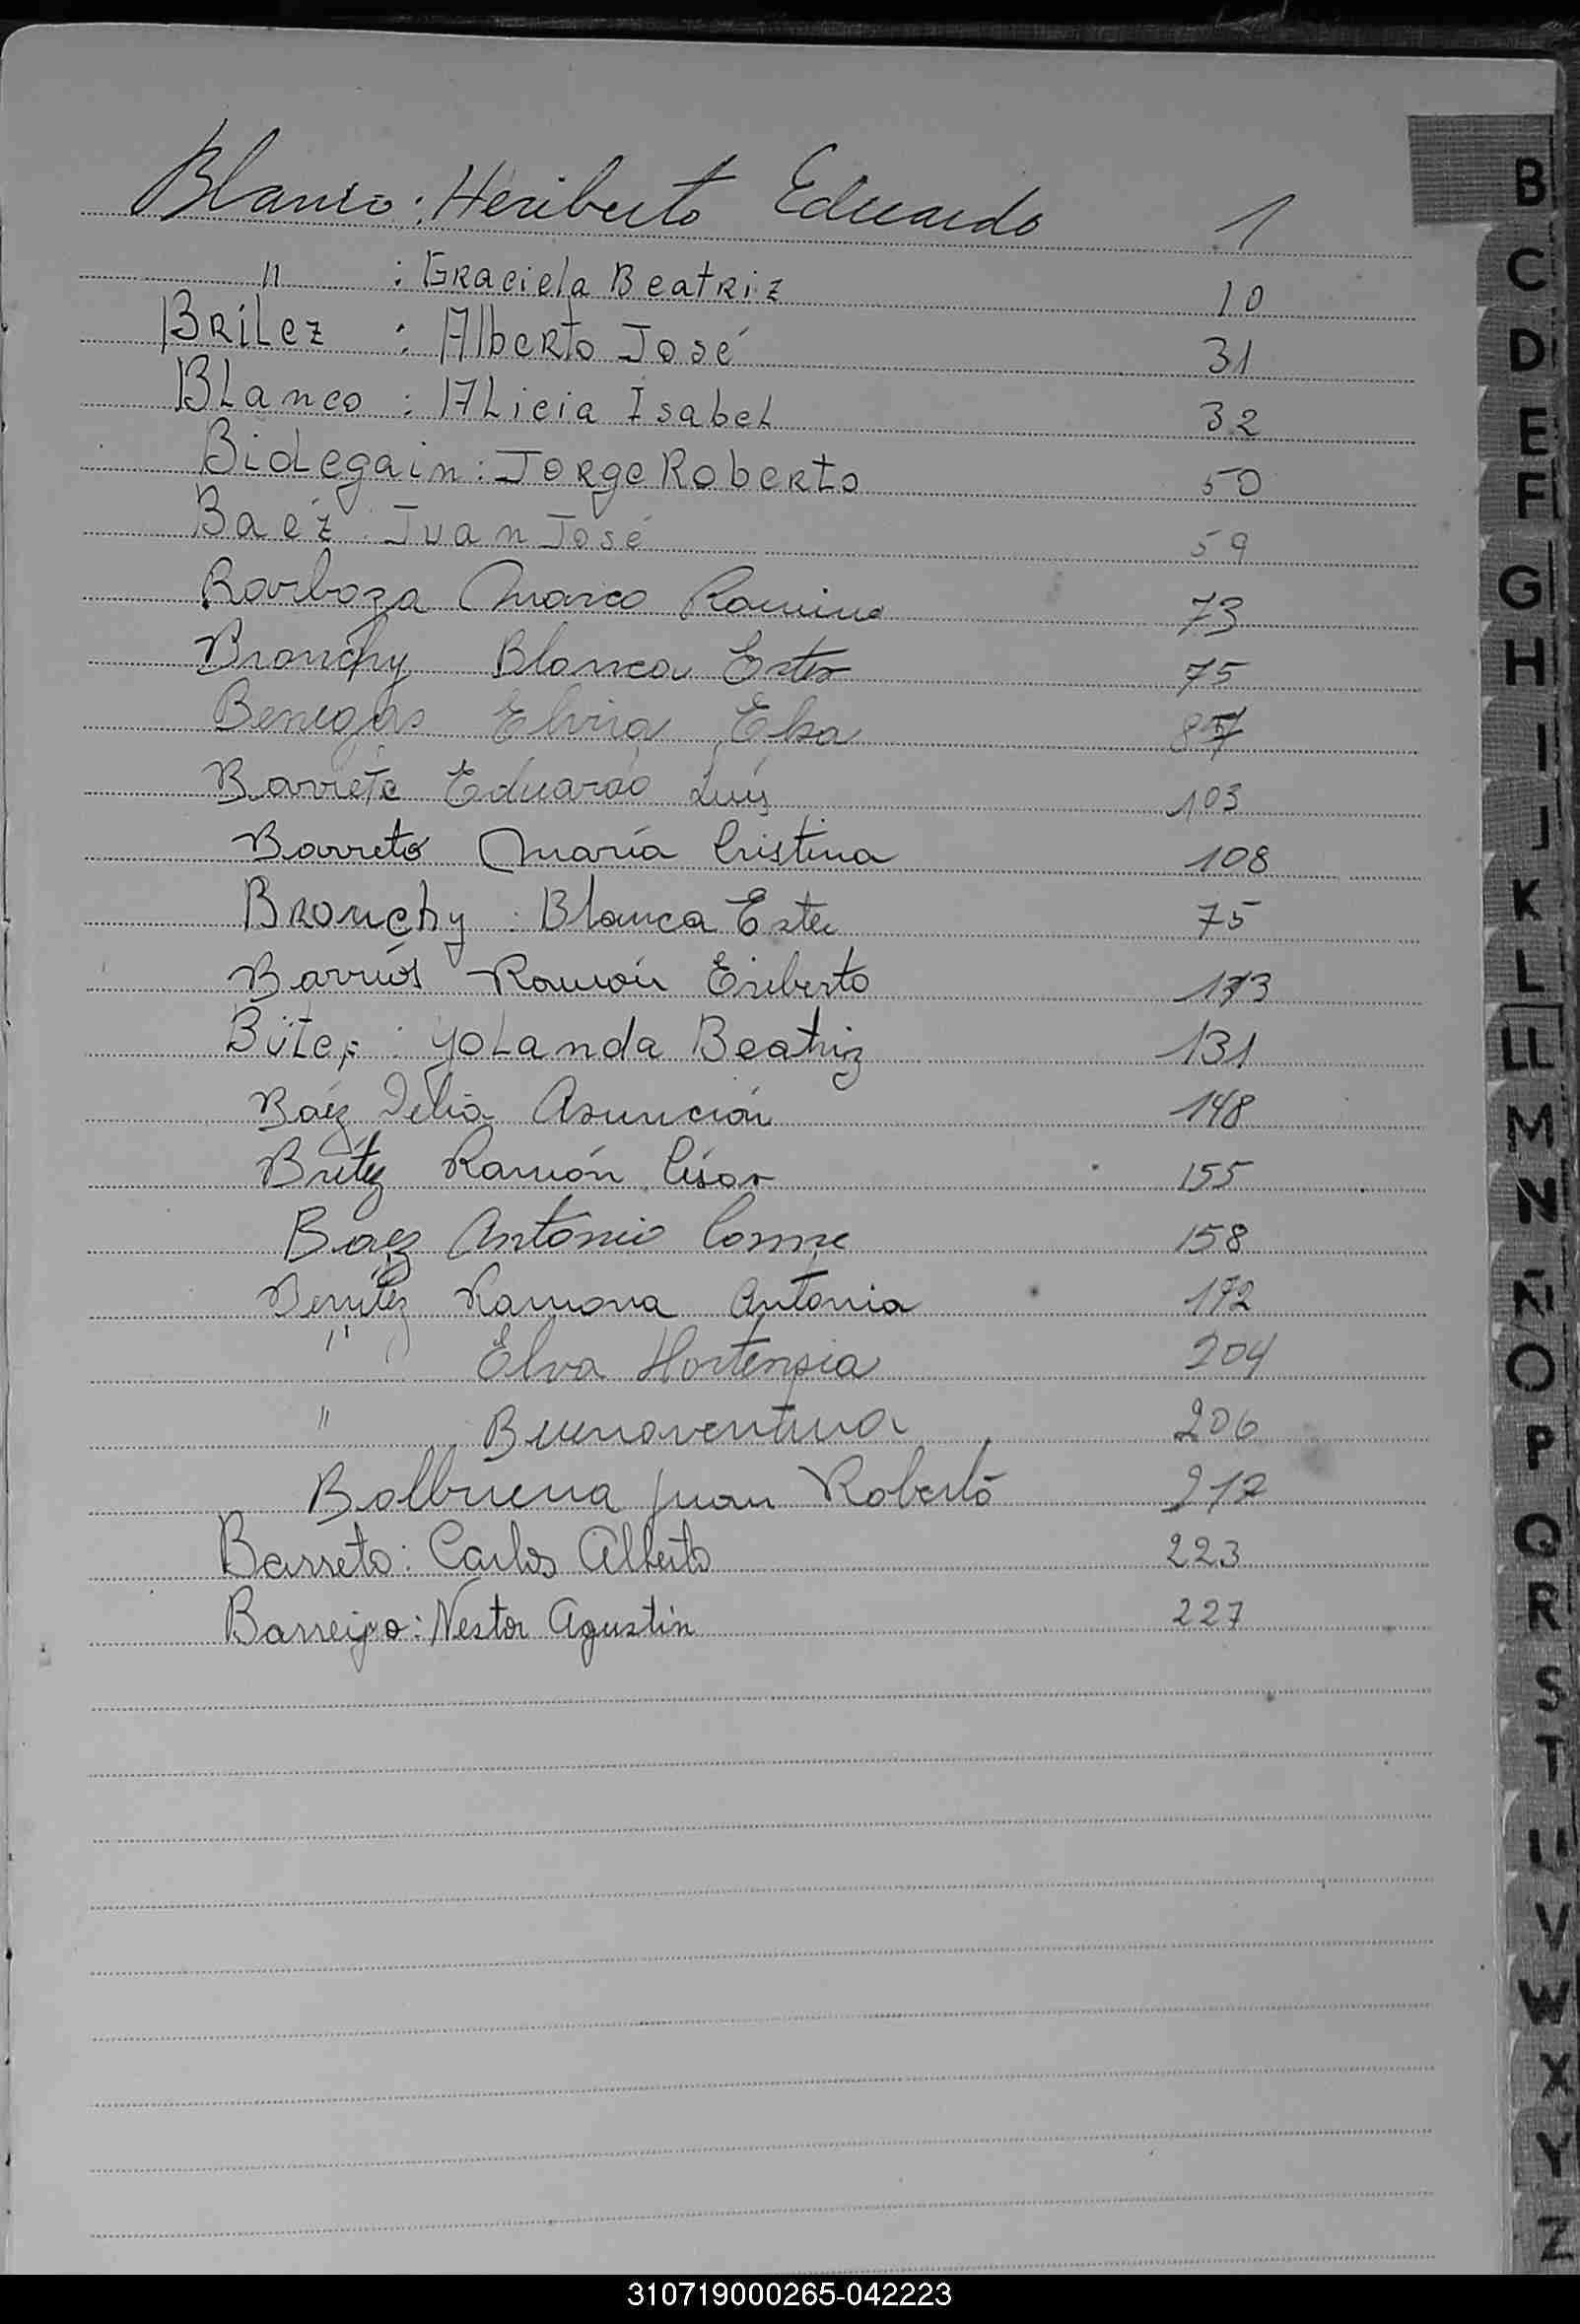 Blanco: Heriberto Eduardo 1
" : Graciela Beatriz 10
Brilez : Alberto José 31
Blanco : Alicia Isabel 32
Bidegain: Jorge Roberto 50
Baéz : Juan José 59
Barboza Marco Ramino 73
Bronchy Blanca Ester 75
Benegas Elvira Elsa
Barrete Eduardo Luis 103
Barreto María Cristina 108
Bronchy : Blanca Ester 75
Barrios Ramón Eriberto
: Yolanda Beatriz 131
Baéz Delia Asunción 148
Britez Ramón César 155
Baez Antonio Cosme 158
Benitez Ramona Antonia 192
" Elva Hortensia 204
" Buenaventura 206
Balbuena Juan Roberto 217
Barreto: Carlos Alberto 223
Barreiro: Nestor Agustín 227
B
C
D
E
F
G
H
I
J
K
L
LL
M
N
Ñ
O
P
Q
R
S
T
U
V
W
X
Y
Z
310719000265-042223